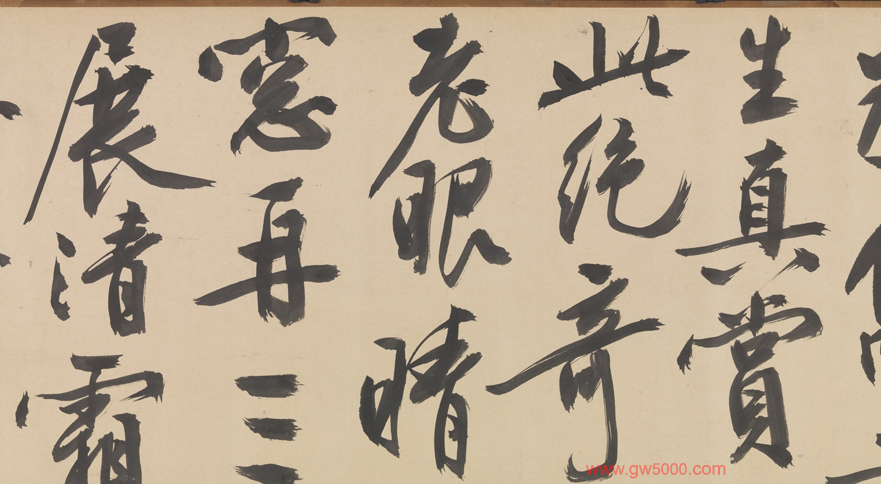 生真賞
此絕奇
老眼晴
窓再三
展清霜
www.gw5000.com